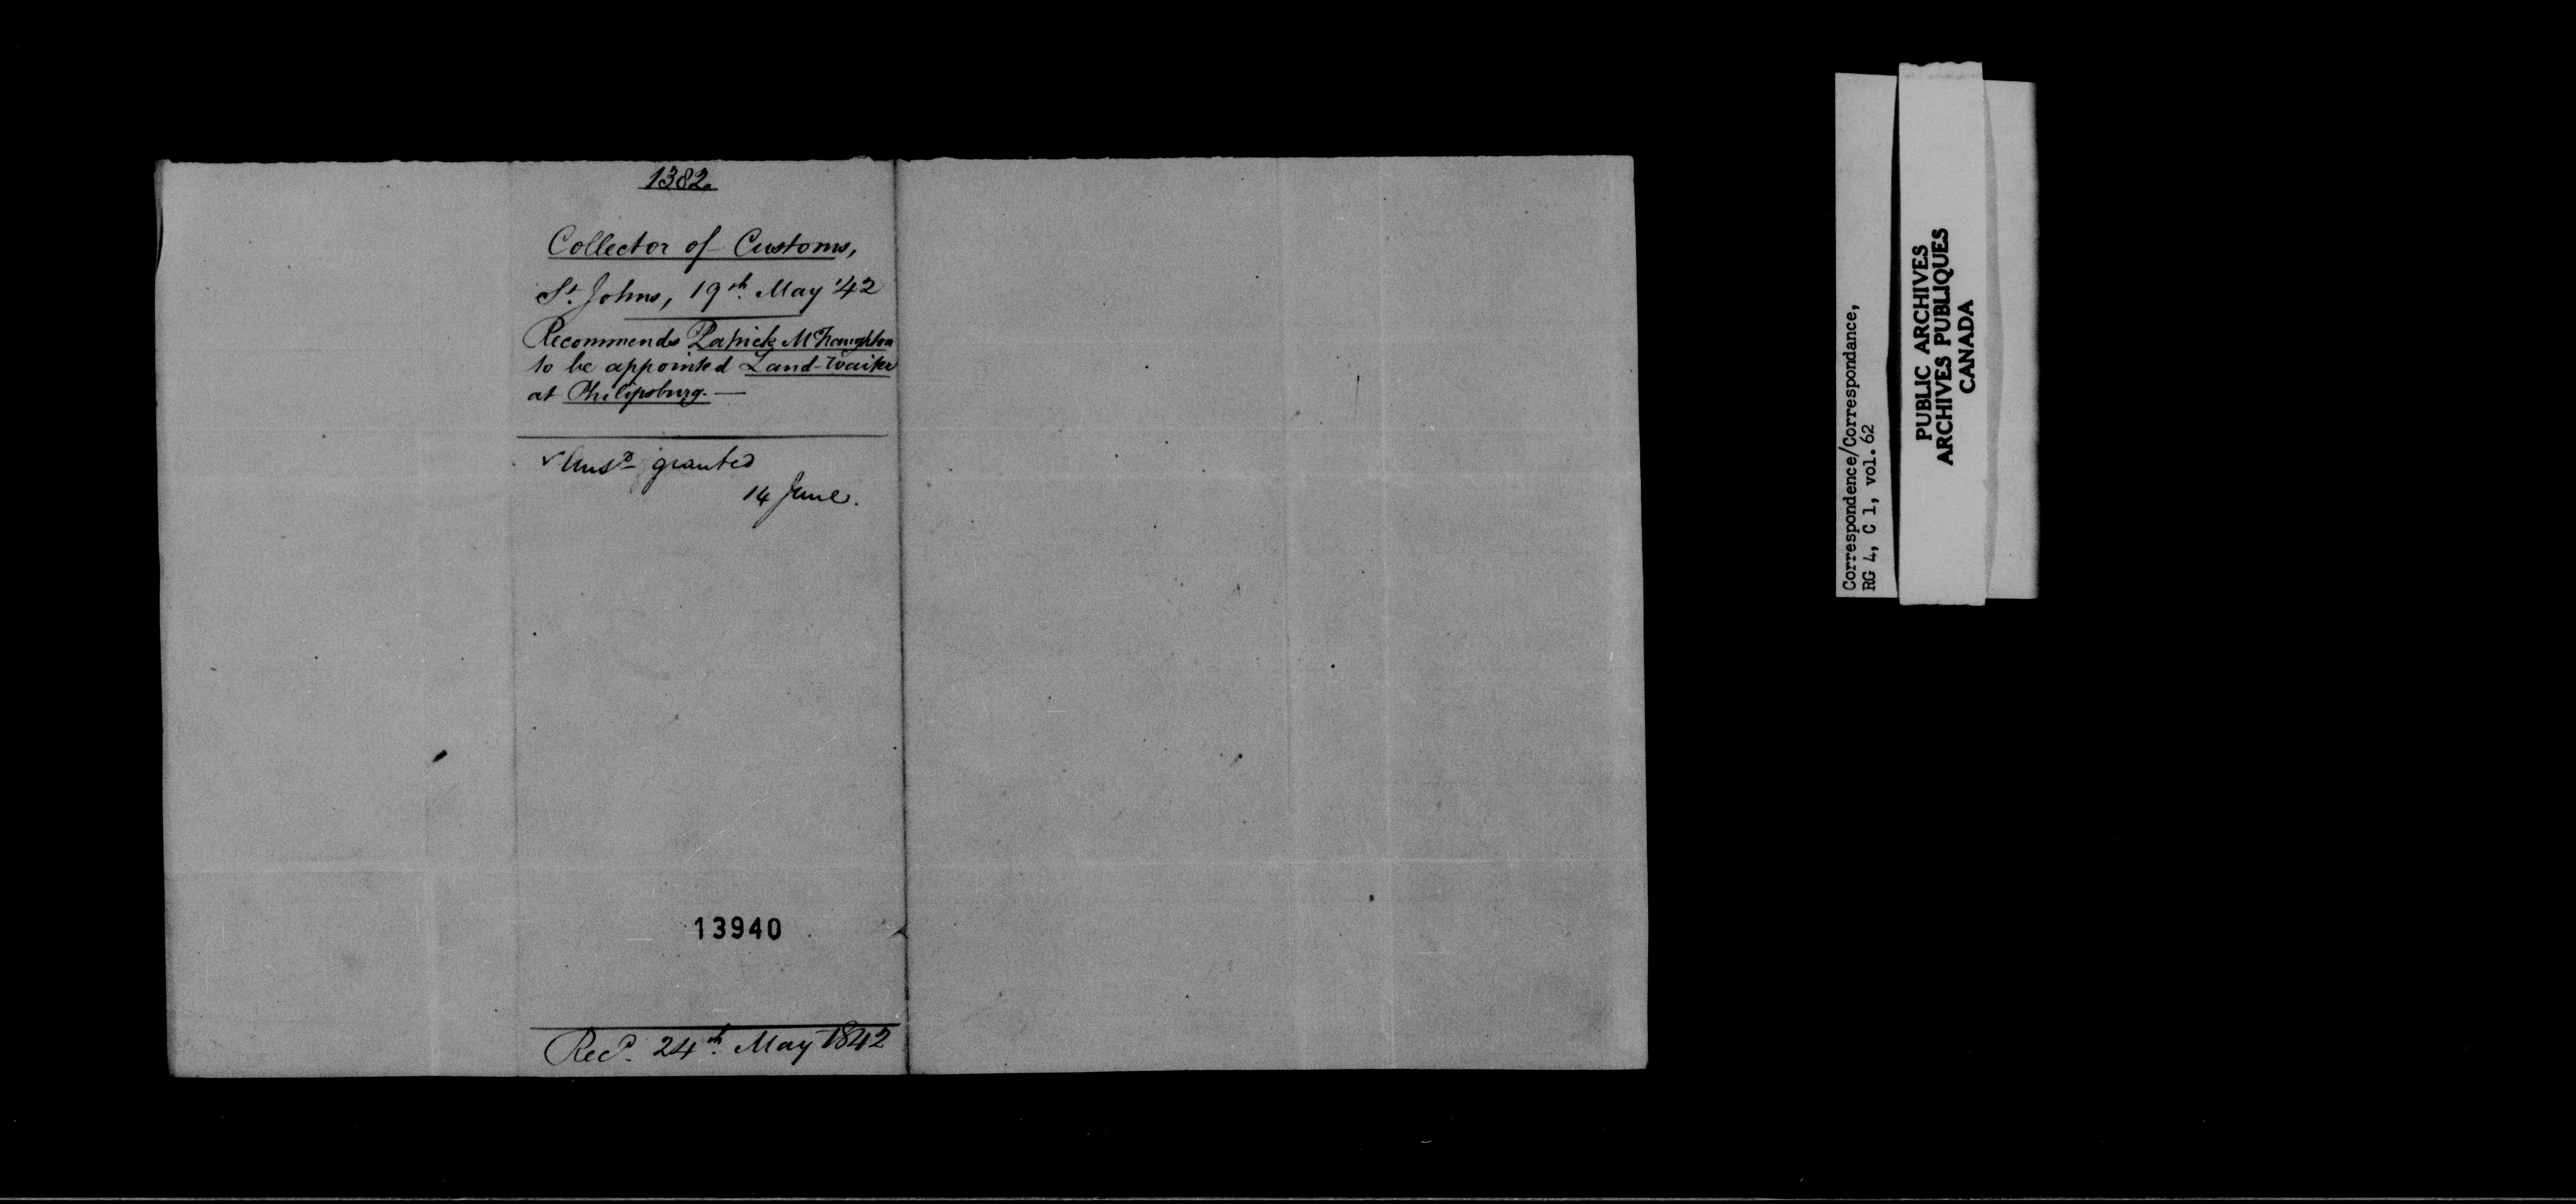 1382.
Collector of Customs,
St. Johns, 19th. May '42
Recommends Patrick McNaughton
to be appointed Land-Waiter
at Philipsburg. —
✓ Ansd. granted
14 June.
13940
Recd. 24th. May 1842
Correspondence/Correspondance,
RG 4, C 1, vol. 62
PUBLIC ARCHIVES
ARCHIVES PUBLIQUES
CANADA